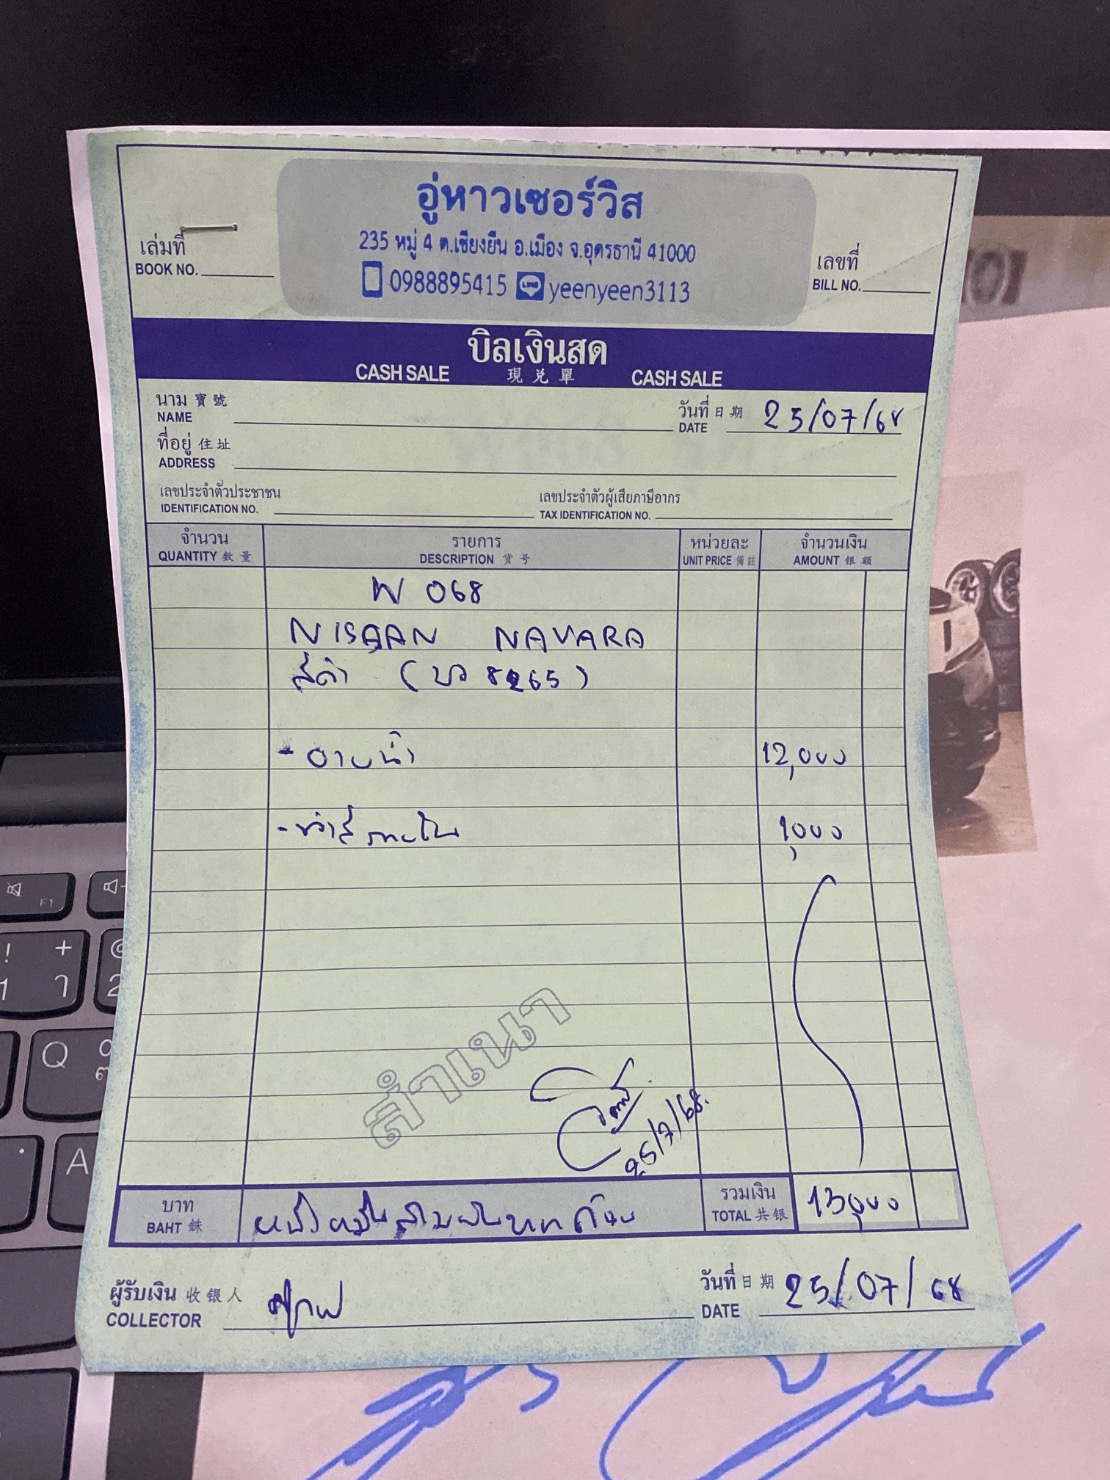 อู่หาวเซอร์วิส
235 หมู่ 4 ต.เชียงยืน อ.เมือง จ.อุดรธานี 41000
0988895415 LINE yeenyeen3113
เล่มที่
BOOK NO.
เลขที่
BILL NO.
บิลเงินสด
CASH SALE 現兌單 CASH SALE
นาม 寶號
NAME
วันที่ 日期 25/07/68
DATE
ที่อยู่ 住址
ADDRESS
เลขประจำตัวประชาชน
IDENTIFICATION NO.
เลขประจำตัวผู้เสียภาษีอากร
TAX IDENTIFICATION NO.
จำนวน รายการ หน่วยละ จำนวนเงิน
QUANTITY 數量 DESCRIPTION 貨号 UNIT PRICE 備註 AMOUNT 銀額
W 068
NISSAN NAVARA
สีดำ (บว 8265)
- อาบน้ำ 12,000
1,000
สำเนา
25/7/68.
บาท
BAHT 銖
หนึ่งหมื่นสามพันบาทถ้วน
รวมเงิน
TOTAL 共銀
13,000
ผู้รับเงิน 收银人
COLLECTOR
วันที่ 日期 25/07/68
DATE
F1
! + @
1 ๅ 2
Q ๐
A